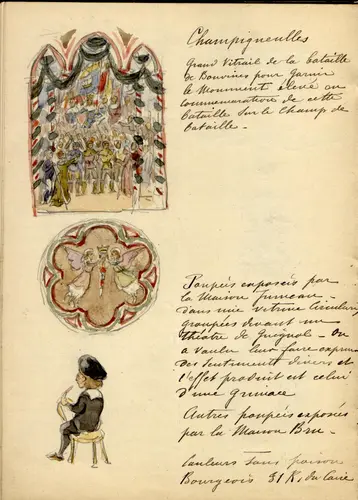 Champigneulles
Grand Vitrail de la bataille
de Bouvines pour garnir
le Monument élevé en
commémoration de cette
bataille sur le Champ de
bataille -
Poupées exposées par
la Maison Jumeau -
dans une vitrine circulaire
groupées devant un
théâtre de Guignols - On
a voulu leur faire exprimer
des sentiments divers et
l'effet produit est celui
d'une grimace
Autres poupées exposées
par la Maison Bru -
Couleurs sans poison
Bourgeois 31 R. du Caire